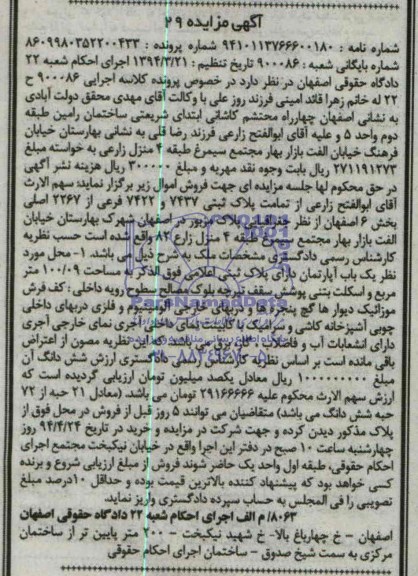 آگهی مزایده ۲۹
شماره نامه : ۹۴۱۰۱۱۳۷۶۶۶۰۰۱۸۰ شماره پرونده : ۸۶۰۹۹۸۰۳۵۲۲۰۰۴۳۳
شماره بایگانی شعبه : ۹۰۰۰۸۶ تاریخ تنظیم : ۱۳۹۴/۳/۲۱ اجرای احکام شعبه ۲۲
دادگاه حقوقی اصفهان در نظر دارد در خصوص پرونده کلاسه اجرایی ۹۰۰۰۸۶ ح
۲۲ له خانم زهرا قائد امینی فرزند روز علی با وکالت آقای مهدی محقق دولت آبادی
به نشانی اصفهان چهارراه محتشم کاشانی ابتدای شریعتی ساختمان رامین طبقه
دوم واحد ۵ و علیه آقای ابوالفتح زارعی فرزند رضا قلی به نشانی بهارستان خیابان
فرهنگ خیابان الفت بازار بهار مجتمع سیمرغ طبقه ۴ منزل زارعی به خواسته مبلغ
۲۷۱۱۹۱۲۷۳ ریال بابت وجوه نقد مهریه و مبلغ ۳۰۰۰۰۰ ریال هزینه نشر آگهی
در حق محکوم لها جلسه مزایده ای جهت فروش اموال زیر برگزار نماید: سهم الارث
آقای ابوالفتح زارعی از تمامت پلاک ثبتی ۷۴۳۷ و ۷۴۲۲ فرعی از ۲۲۶۷ اصلی
بخش ۶ اصفهان از نظر پلاک مزبور در اصفهان شهرک بهارستان خیابان
الفت بازار بهار مجتمع سیمرغ طبقه ۴ منزل زارع واقع شده است حسب نظریه
کارشناس رسمی دادگستری مشخصات ملک به شرح ذیل می باشد. ۱- محل مورد
نظر یک باب آپارتمان دارای پلاک ثبتی اعلامی فوق الذکر به مساحت ۱۰۰/۰۹ متر
مربع و اسکلت بتنی پوشش سقف تیرچه بلوک مصالح سطوح رویه داخلی : کف فرش
موزائیک دیوار ها گچ پنجره ها و دربهای خارجی آلومینیوم و فلزی دربهای داخلی
چوبی آشپزخانه کاشی و سرامیک با کابینت نمای داخلی آجری نمای خارجی آجری
دارای انشعابات آب و فاضلاب نظریه مصون از اعتراض
باقی مانده است بر اساس نظریه کارشناس رسمی دادگستری ارزش شش دانگ آن
مبلغ ۱۰۰۰۰۰۰۰۰۰ ریال معادل یکصد میلیون تومان ارزیابی گردیده است که
ارزش سهم الارث محکوم علیه ۲۹۱۶۶۶۶۶ تومان می باشد (معادل ۲۱ حبه از ۷۲
حبه شش دانگ می باشد) متقاضیان می توانند ۵ روز قبل از فروش در محل فوق از
پلاک مذکور دیدن کرده و جهت شرکت در مزایده و خرید در تاریخ ۹۴/۴/۲۴ روز
چهارشنبه ساعت ۱۰ صبح در دفتر این اجرا واقع در خیابان نیکبخت مجتمع اجرای
احکام حقوقی، طبقه اول واحد یک حاضر شوند فروش از مبلغ ارزیابی شروع و برنده
کسی خواهد بود که پیشنهاد کننده بالاترین قیمت بوده و حداقل ۱۰درصد مبلغ
تصویبی را فی المجلس به حساب سپرده دادگستری واریز نماید.
۸۰۶۳/ م الف اجرای احکام شعبه ۲۲ دادگاه حقوقی اصفهان
اصفهان - خ چهارباغ بالا- خ شهید نیکبخت - ۲۰۰ متر پایین تر از ساختمان
مرکزی به سمت شیخ صدوق - ساختمان اجرای احکام حقوقی
ParsNamadData